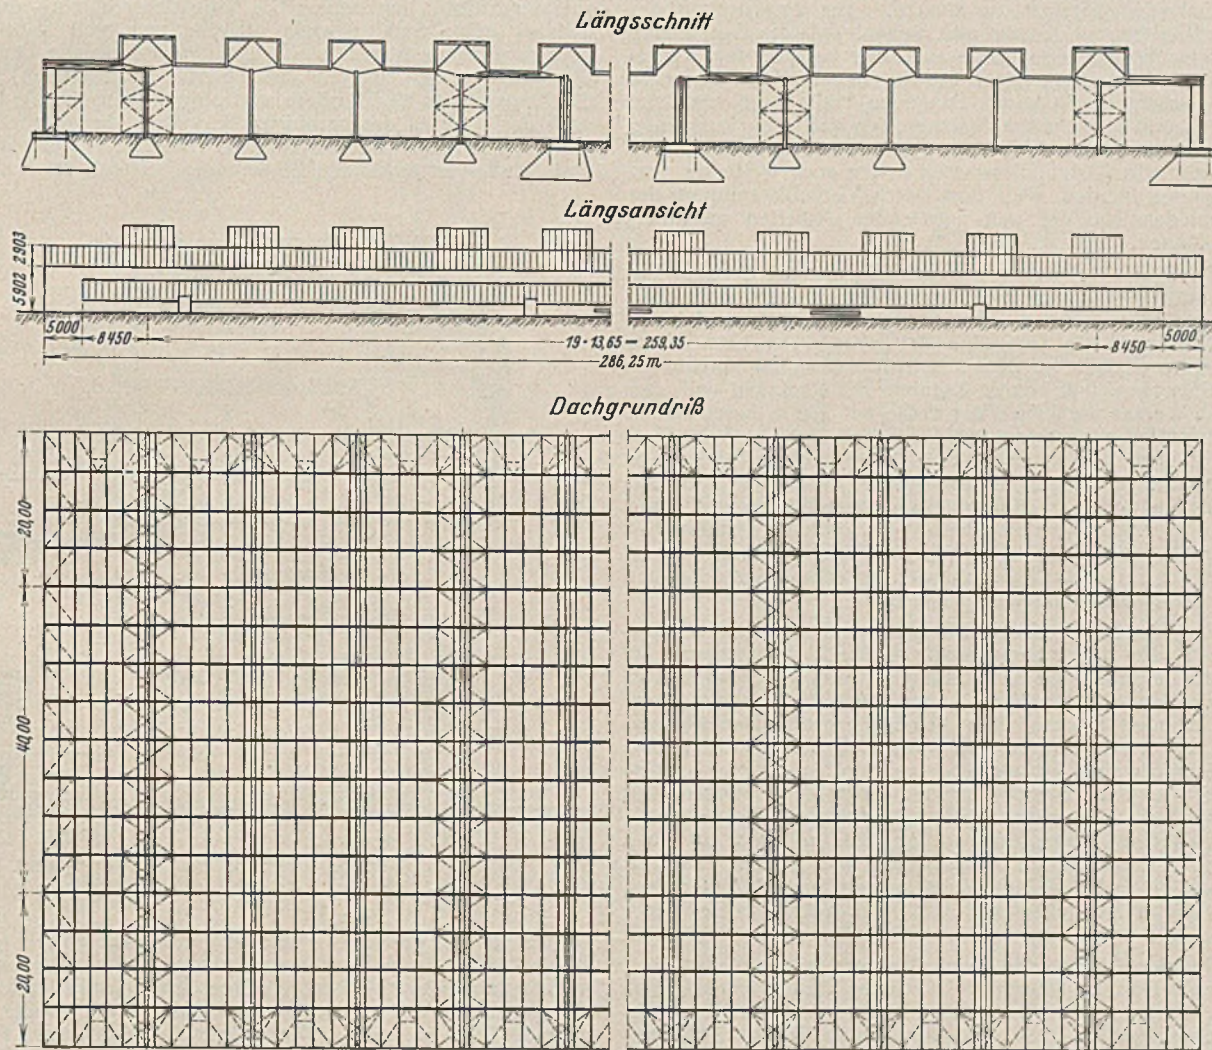 Längsschnitt
Längsansicht
2903
5902
5000
8450
19·13,65 — 259,35
8450
5000
286,25 m
Dachgrundriß
20,00
40,00
20,00